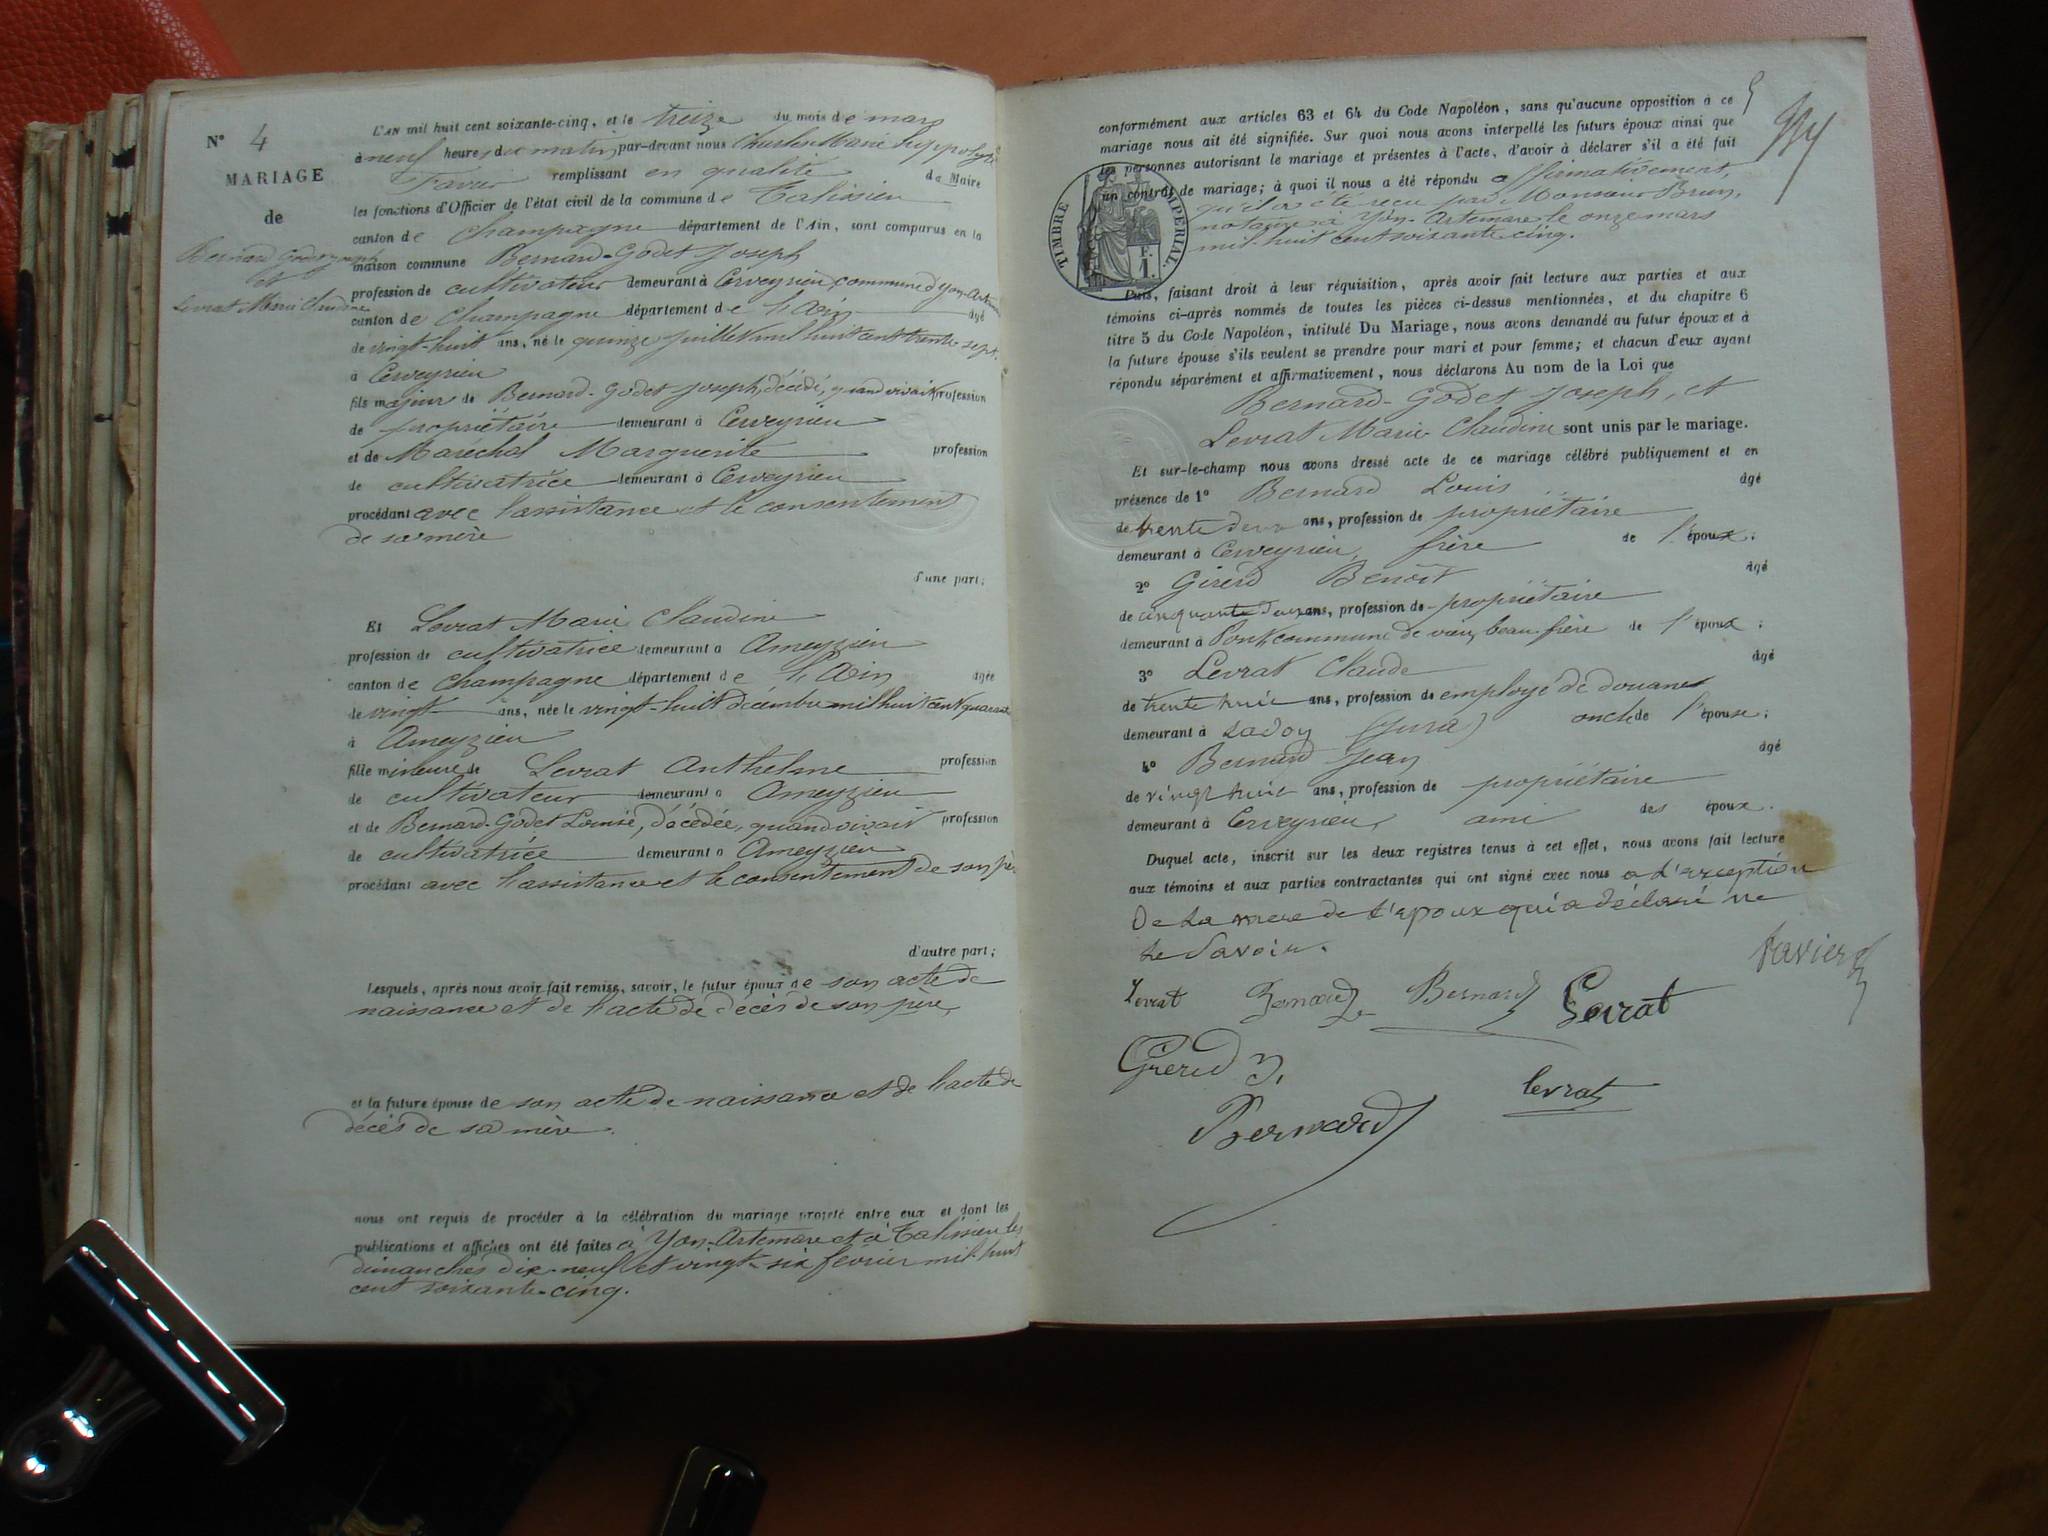 N° 4
MARIAGE
de
Bernard-Godet Joseph
et
Levrat Marie Claudine
L'AN mil huit cent soixante-cinq, et le treize du mois de mars
à neuf heures du matin, par-devant nous Charles Marie Hyppolyte
Favier remplissant en qualité de Maire
les fonctions d'Officier de l'état civil de la commune de Talissieu
canton de Champagne département de l'Ain, sont comparus en la
maison commune Bernard-Godet Joseph
profession de cultivateur demeurant à Cerveyrieu, commune d'Yon-Artemare
canton de Champagne département de l'Ain âgé
de vingt-huit ans, né le quinze juillet mil huit cent trente sept.
à Cerveyrieu
fils majeur de Bernard-Godet Joseph, décédé, quand vivait profession
de propriétaire demeurant à Cerveyrieu
et de Maréchal Marguerite profession
de cultivatrice demeurant à Cerveyrieu
procédant avec l'assistance et le consentement
de sa mère
d'une part;
Et Levrat Marie Claudine
profession de cultivatrice demeurant à Ameyzieu
canton de Champagne département de l'Ain âgée
de vingt ans, née le vingt-huit décembre mil huit cent quarante
à Ameyzieu
fille mineure de Levrat Anthelme profession
de cultivateur demeurant à Ameyzieu
et de Bernard-Godet Louise, décédée, quand vivait profession
de cultivatrice demeurant à Ameyzieu
procédant avec l'assistance et le consentement de son père
d'autre part;
Lesquels, après nous avoir fait remise, savoir, le futur époux de son acte de
naissance et de l'acte de décès de son père,
et la future épouse de son acte de naissance et de l'acte de
décès de sa mère.
nous ont requis de procéder à la célébration du mariage projeté entre eux et dont les
publications et affiches ont été faites à Yon-Artemare et à Talissieu les
dimanches dix-neuf et vingt-six février mil huit
cent soixante-cinq.
5
conformément aux articles 63 et 64 du Code Napoléon, sans qu'aucune opposition à ce
mariage nous ait été signifiée. Sur quoi nous avons interpellé les futurs époux ainsi que
les personnes autorisant le mariage et présentes à l'acte, d'avoir à déclarer s'il a été fait
un contrat de mariage; à quoi il nous a été répondu affirmativement,
qu'il a été reçu par Monsieur Brun,
notaire à Yon-Artemare le onze mars
mil huit cent soixante-cinq.
TIMBRE IMPERIAL
F.
1.
Puis, faisant droit à leur réquisition, après avoir fait lecture aux parties et aux
témoins ci-après nommés de toutes les pièces ci-dessus mentionnées, et du chapitre 6
titre 5 du Code Napoléon, intitulé Du Mariage, nous avons demandé au futur époux et à
la future épouse s'ils veulent se prendre pour mari et pour femme; et chacun d'eux ayant
répondu séparément et affirmativement, nous déclarons Au nom de la Loi que
Bernard-Godet Joseph, et
Levrat Marie Claudine sont unis par le mariage.
Et sur-le-champ nous avons dressé acte de ce mariage célébré publiquement et en
présence de 1° Bernard Louis âgé
de trente deux ans, profession de propriétaire
demeurant à Cerveyrieu, frère de l'époux;
2° Girerd Benoît âgé
de cinquante deux ans, profession de propriétaire
demeurant à Pont, commune de vieu, beau frère de l'époux;
3° Levrat Claude âgé
de trente huit ans, profession de employé de douanes
demeurant à Ladoy (Jura) oncle de l'épouse;
4° Bernard Jean âgé
de vingt huit ans, profession de propriétaire
demeurant à Cerveyrieu, ami des époux.
Duquel acte, inscrit sur les deux registres tenus à cet effet, nous avons fait lecture
aux témoins et aux parties contractantes qui ont signé avec nous a d'exception
De La mere de l'epoux qui a déclaré ne
Le Savoir.
Favier
Levrat Bernard Bernard Levrat
Girerd B.
levrat
Bernard